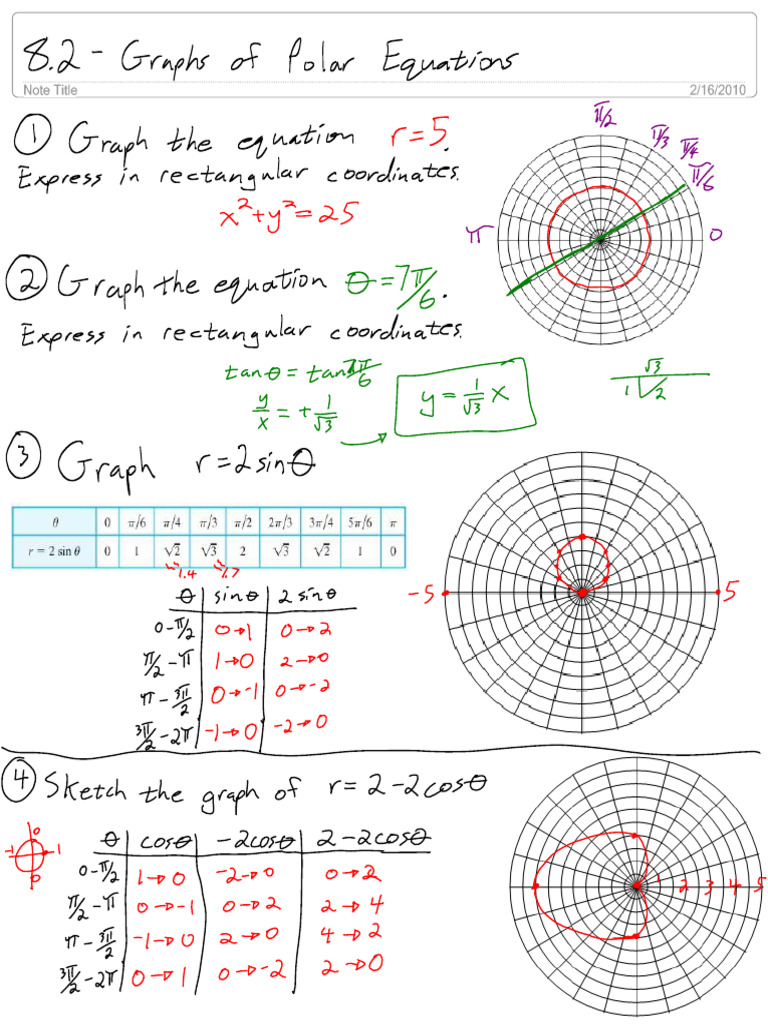 8.2 - Graphs of Polar Equations
Note Title 2/16/2010
① Graph the equation r=5.
Express in rectangular coordinates.
x²+y²=25
π/2
π/3
π/4
π/6
π
0
② Graph the equation θ=7π/6.
Express in rectangular coordinates.
tanθ = tan 7π/6
y/x = + 1/√3
y = 1/√3 x
√3
1 2
③ Graph r=2sinθ
θ 0 π/6 π/4 π/3 π/2 2π/3 3π/4 5π/6 π
r = 2 sin θ 0 1 √2 √3 2 √3 √2 1 0
≈1.4 ≈1.7
-5 5
θ sinθ 2sinθ
0-π/2 0→1 0→2
π/2-π 1→0 2→0
π-3π/2 0→-1 0→-2
3π/2-2π -1→0 -2→0
④ Sketch the graph of r=2-2cosθ
0
-1 1
0
θ cosθ -2cosθ 2-2cosθ
0-π/2 1→0 -2→0 0→2
π/2-π 0→-1 0→2 2→4
π-3π/2 -1→0 2→0 4→2
3π/2-2π 0→1 0→-2 2→0
1 2 3 4 5